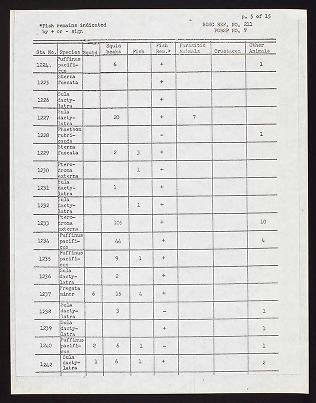 p. 5 of 15
*Fish remains indicated
by + or - sign
POBSP NO. 7
Sta No. Species Squid Squid beaks Fish Fish Rem.* Parasitic Animals Crustacea Other Animals
1224 Puffinus pacificus 6 + 1
1225 Sterna fuscata +
1226 Sula dactylatra +
1227 Sula dactylatra 20 + 7
1228 Phaethon rubricauda - 1
1229 Sterna fuscata 2 3 +
1230 Pterodroma externa 1 +
1231 Sula dactylatra 1 +
1232 Sula dactylatra 1 +
1233 Pterodroma externa 105 + 10
1234 Puffinus pacificus 44 + 4
1235 Puffinus pacificus 9 1 +
1236 Sula dactylatra 2 +
1237 Fregata minor 6 15 4 +
1238 Sula dactylatra 3 - 1
1239 Sula dactylatra + 1
1240 Puffinus pacificus 2 6 1 - 1
1242 Sula dactylatra 1 6 1 + 2